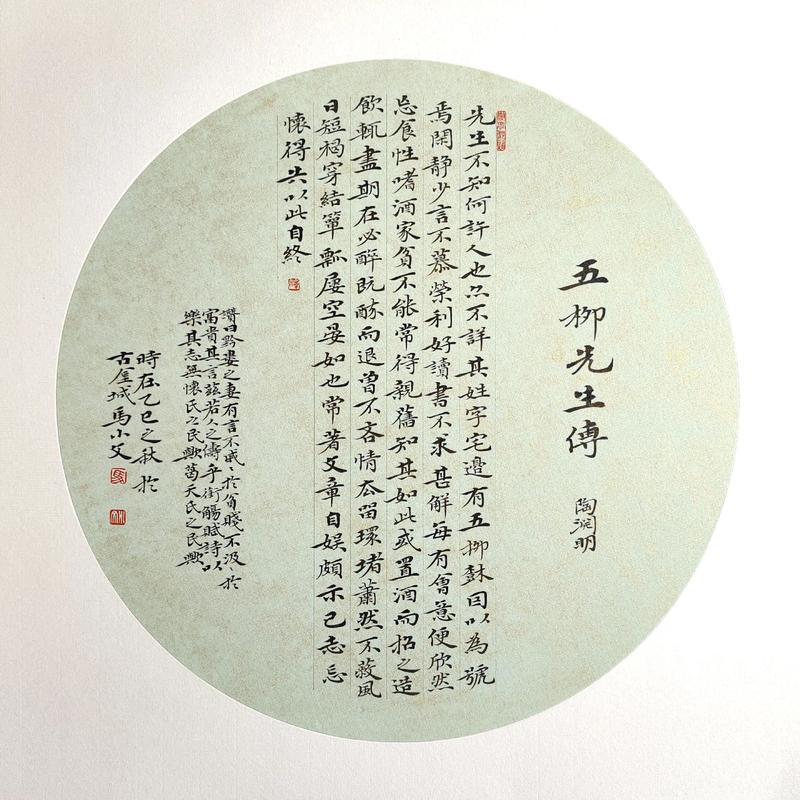 五柳先生傳
陶淵明
先生不知何許人也亦不詳其姓字宅邊有五柳樹因以為號
焉閑靜少言不慕榮利好讀書不求甚解每有會意便欣然
忘食性嗜酒家貧不能常得親舊知其如此或置酒而招之造
飲輒盡期在必醉既醉而退曾不吝情去留環堵蕭然不蔽風
日短褐穿結簞瓢屢空晏如也常著文章自娛頗示己志忘
懷得失以此自終
贊曰黔婁之妻有言不戚〻於貧賤不汲〻於
富貴其言茲若人之儔乎銜觴賦詩以
樂其志無懷氏之民歟葛天氏之民歟
時在乙巳之秋於
古崖城馬小文